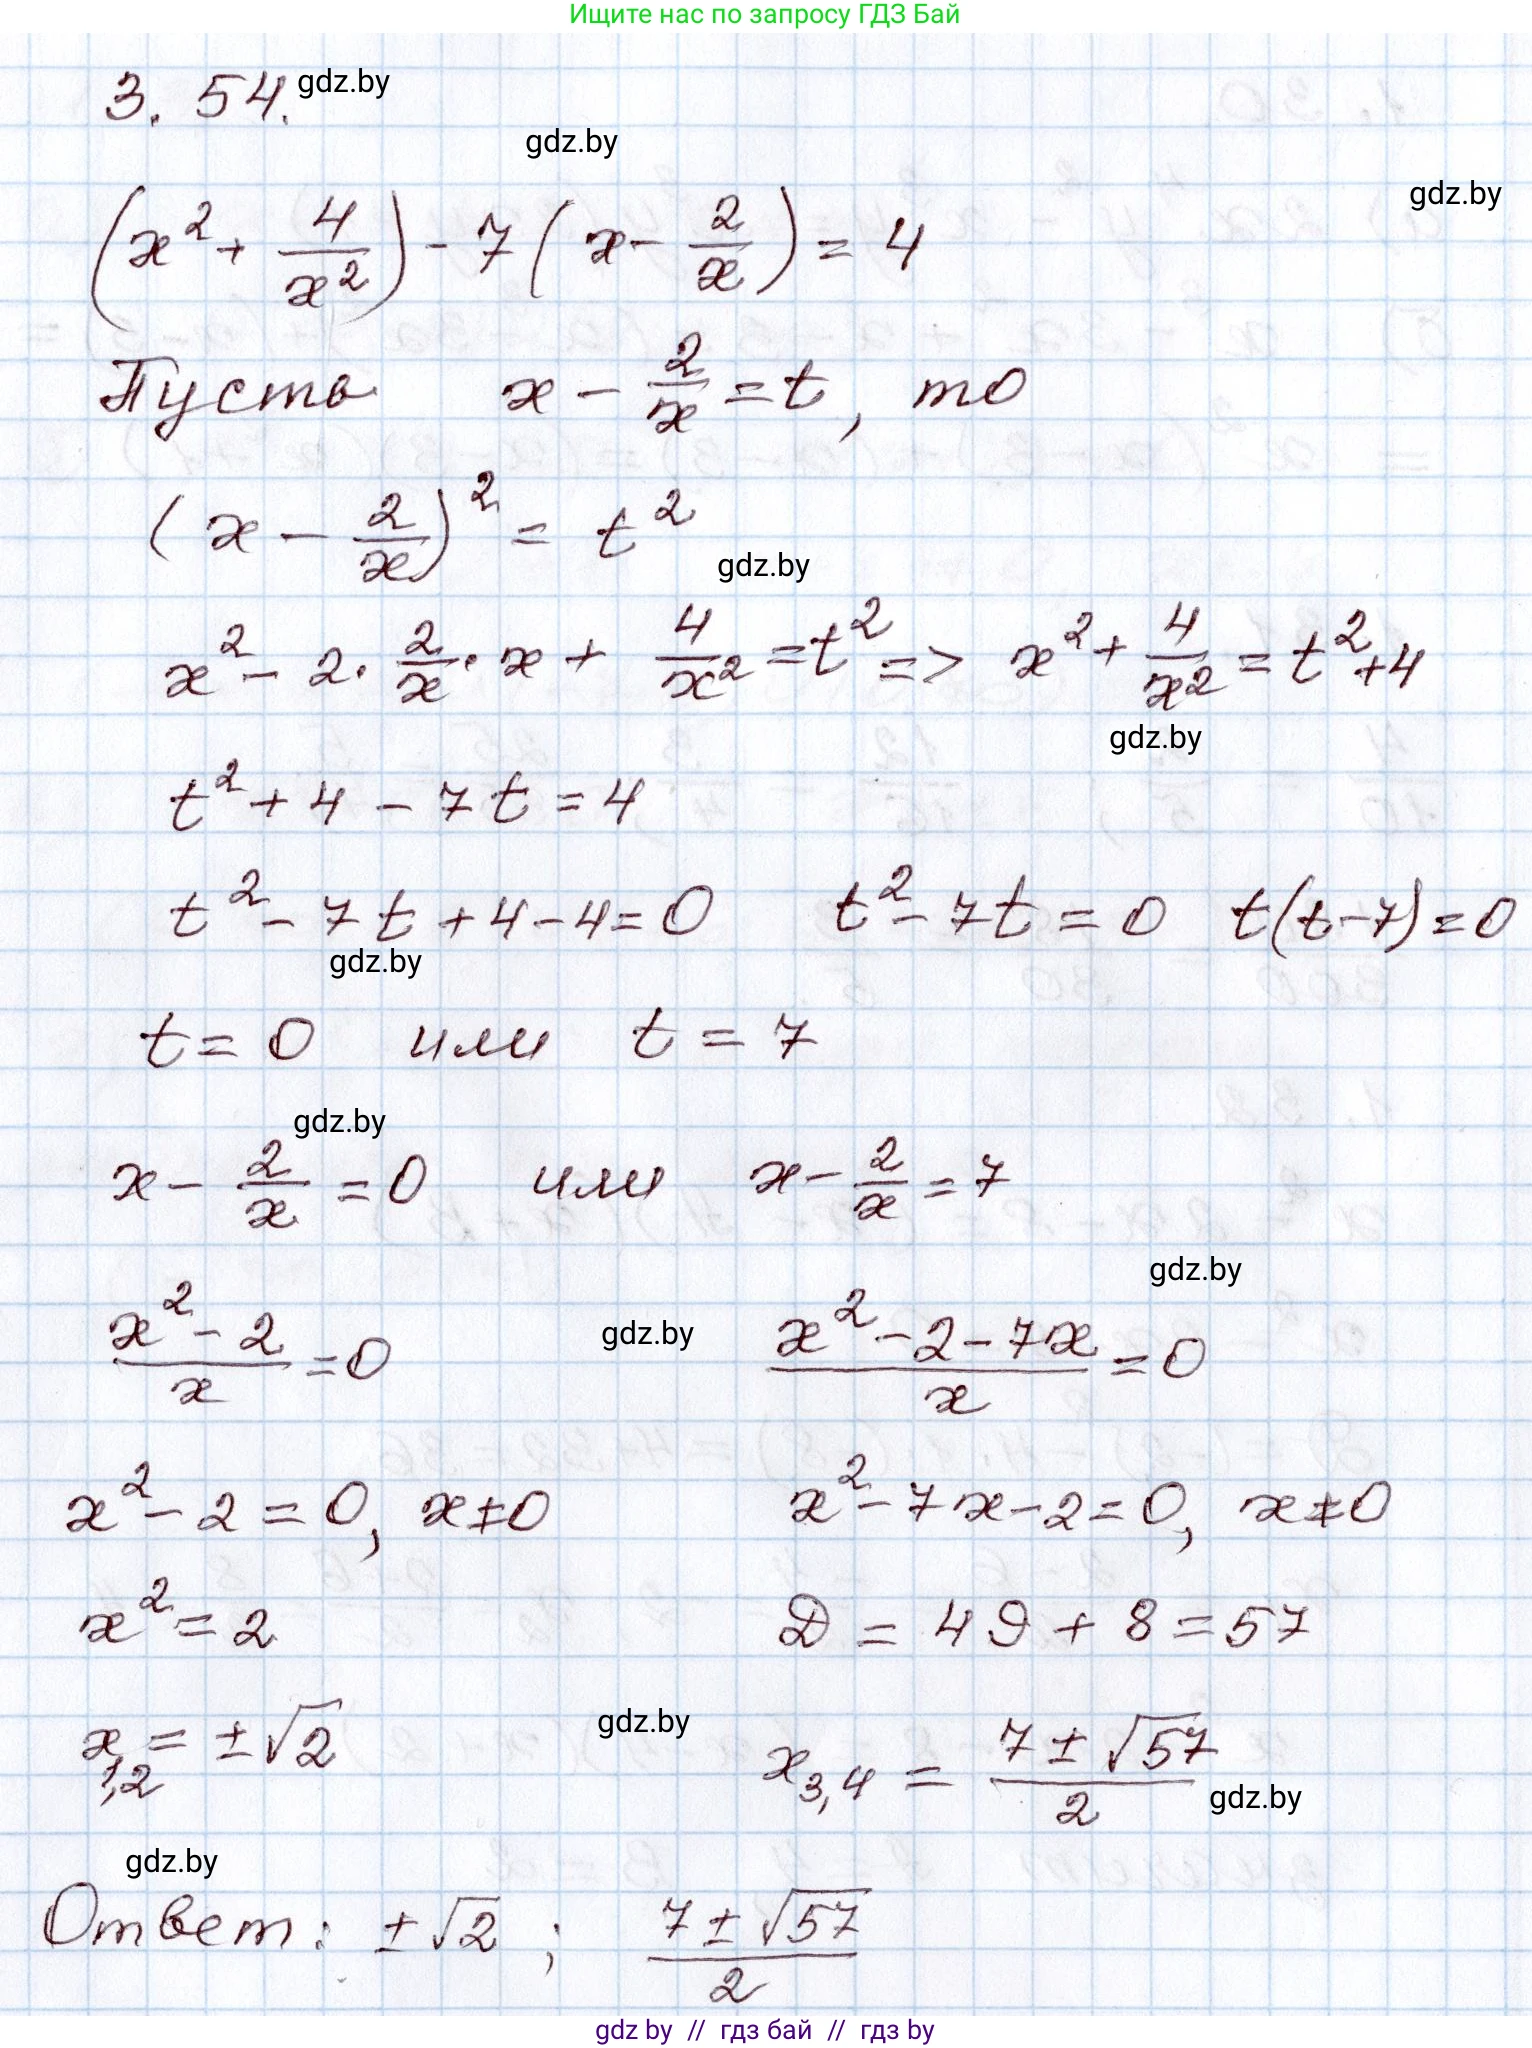 Ищите нас по запросу ГДЗ Бай
3. 54. gdz.by
gdz.by
gdz.by
(x² + 4/x²) - 7(x - 2/x) = 4
Пусть x - 2/x = t, то
(x - 2/x)² = t²
gdz.by
x² - 2 · 2/x · x + 4/x² = t² => x² + 4/x² = t² + 4
gdz.by
t² + 4 - 7t = 4
t² - 7t + 4 - 4 = 0 t² - 7t = 0 t(t - 7) = 0
gdz.by
t = 0 или t = 7
gdz.by
x - 2/x = 0 или x - 2/x = 7
gdz.by
(x² - 2)/x = 0 gdz.by (x² - 2 - 7x)/x = 0
x² - 2 = 0, x ≠ 0 x² - 7x - 2 = 0, x ≠ 0
x² = 2 D = 49 + 8 = 57
x₁,₂ = ±√2 gdz.by x₃,₄ = (7 ± √57)/2 gdz.by
gdz.by
Ответ: ±√2 ; (7 ± √57)/2
gdz by // гдз бай // гдз by